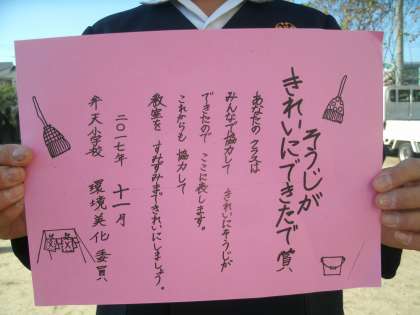 そうじが
きれいにできたで賞
あなたのクラスは
みんなで協力して きれいにそうじが
できたので ここに表します。
これからも 協力して
教室を すみずみまできれいにしましょう。
二〇一七年 十一月
弁天小学校 環境美化委員